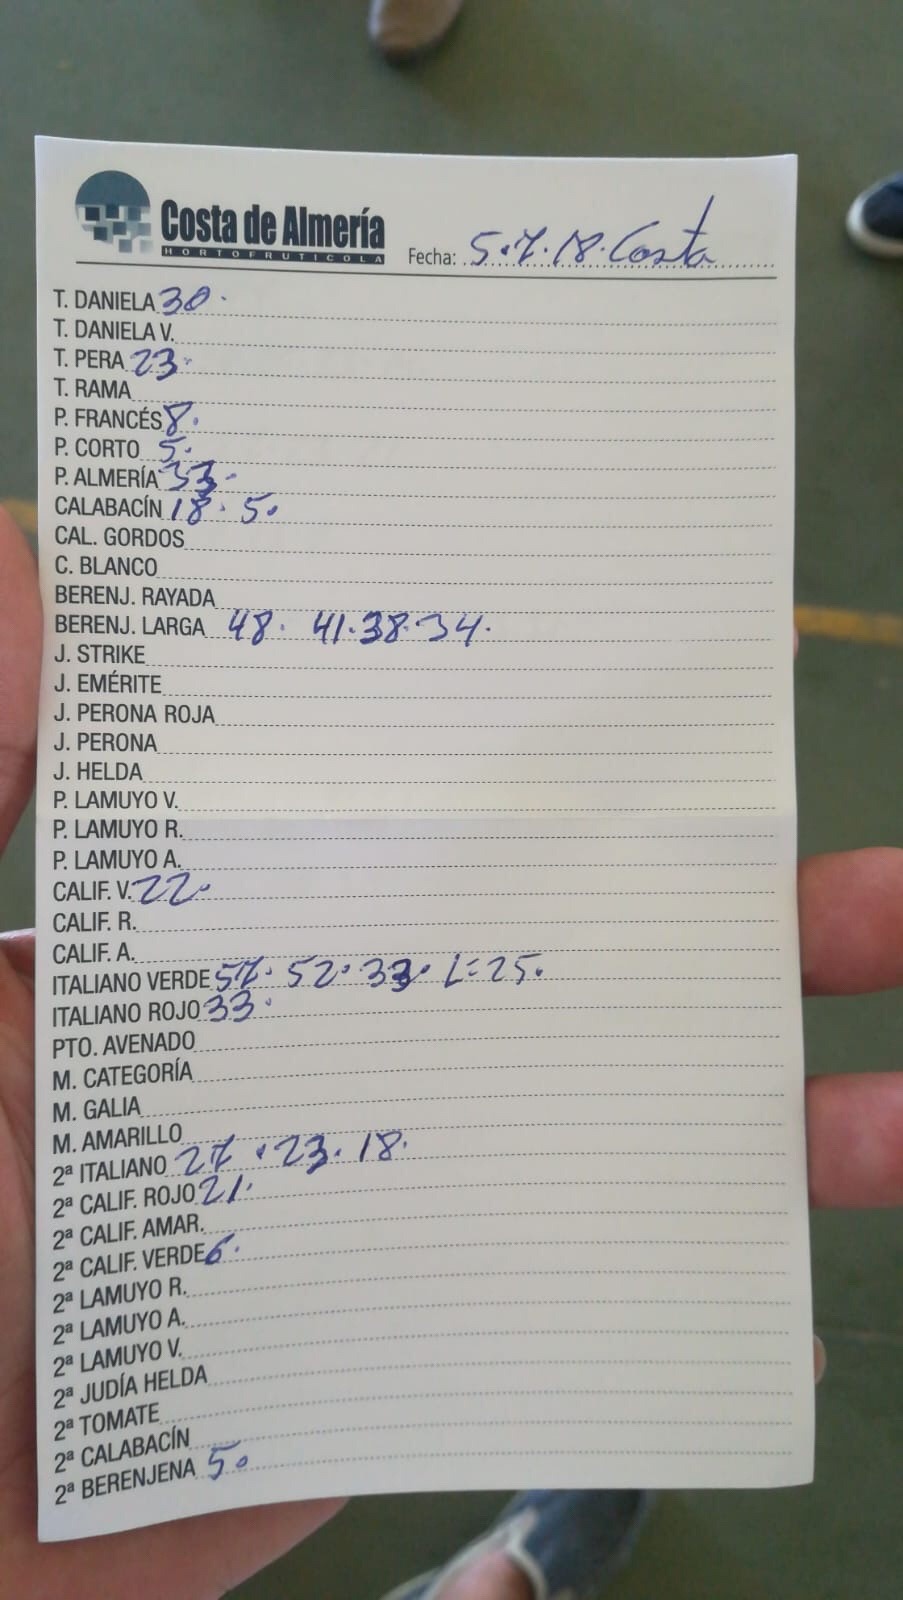 Costa de Almería
HORTOFRUTICOLA
Fecha: 5.7.18. Costa
T. DANIELA 30.
T. DANIELA V.
T. PERA 23.
T. RAMA
P. FRANCÉS 8.
P. CORTO 5.
P. ALMERÍA 33.
CALABACÍN 18. 5.
CAL. GORDOS
C. BLANCO
BERENJ. RAYADA
BERENJ. LARGA 48. 41.38.34.
J. STRIKE
J. EMÉRITE
J. PERONA ROJA
J. PERONA
J. HELDA
P. LAMUYO V.
P. LAMUYO R.
P. LAMUYO A.
CALIF. V. 22.
CALIF. R.
CALIF. A.
ITALIANO VERDE 57. 52. 33. L=25.
ITALIANO ROJO 33.
PTO. AVENADO
M. CATEGORÍA
M. GALIA
M. AMARILLO
2ª ITALIANO 27.23.18.
2ª CALIF. ROJO 21.
2ª CALIF. AMAR.
2ª CALIF. VERDE 6.
2ª LAMUYO R.
2ª LAMUYO A.
2ª LAMUYO V.
2ª JUDÍA HELDA
2ª TOMATE
2ª CALABACÍN
2ª BERENJENA 5.